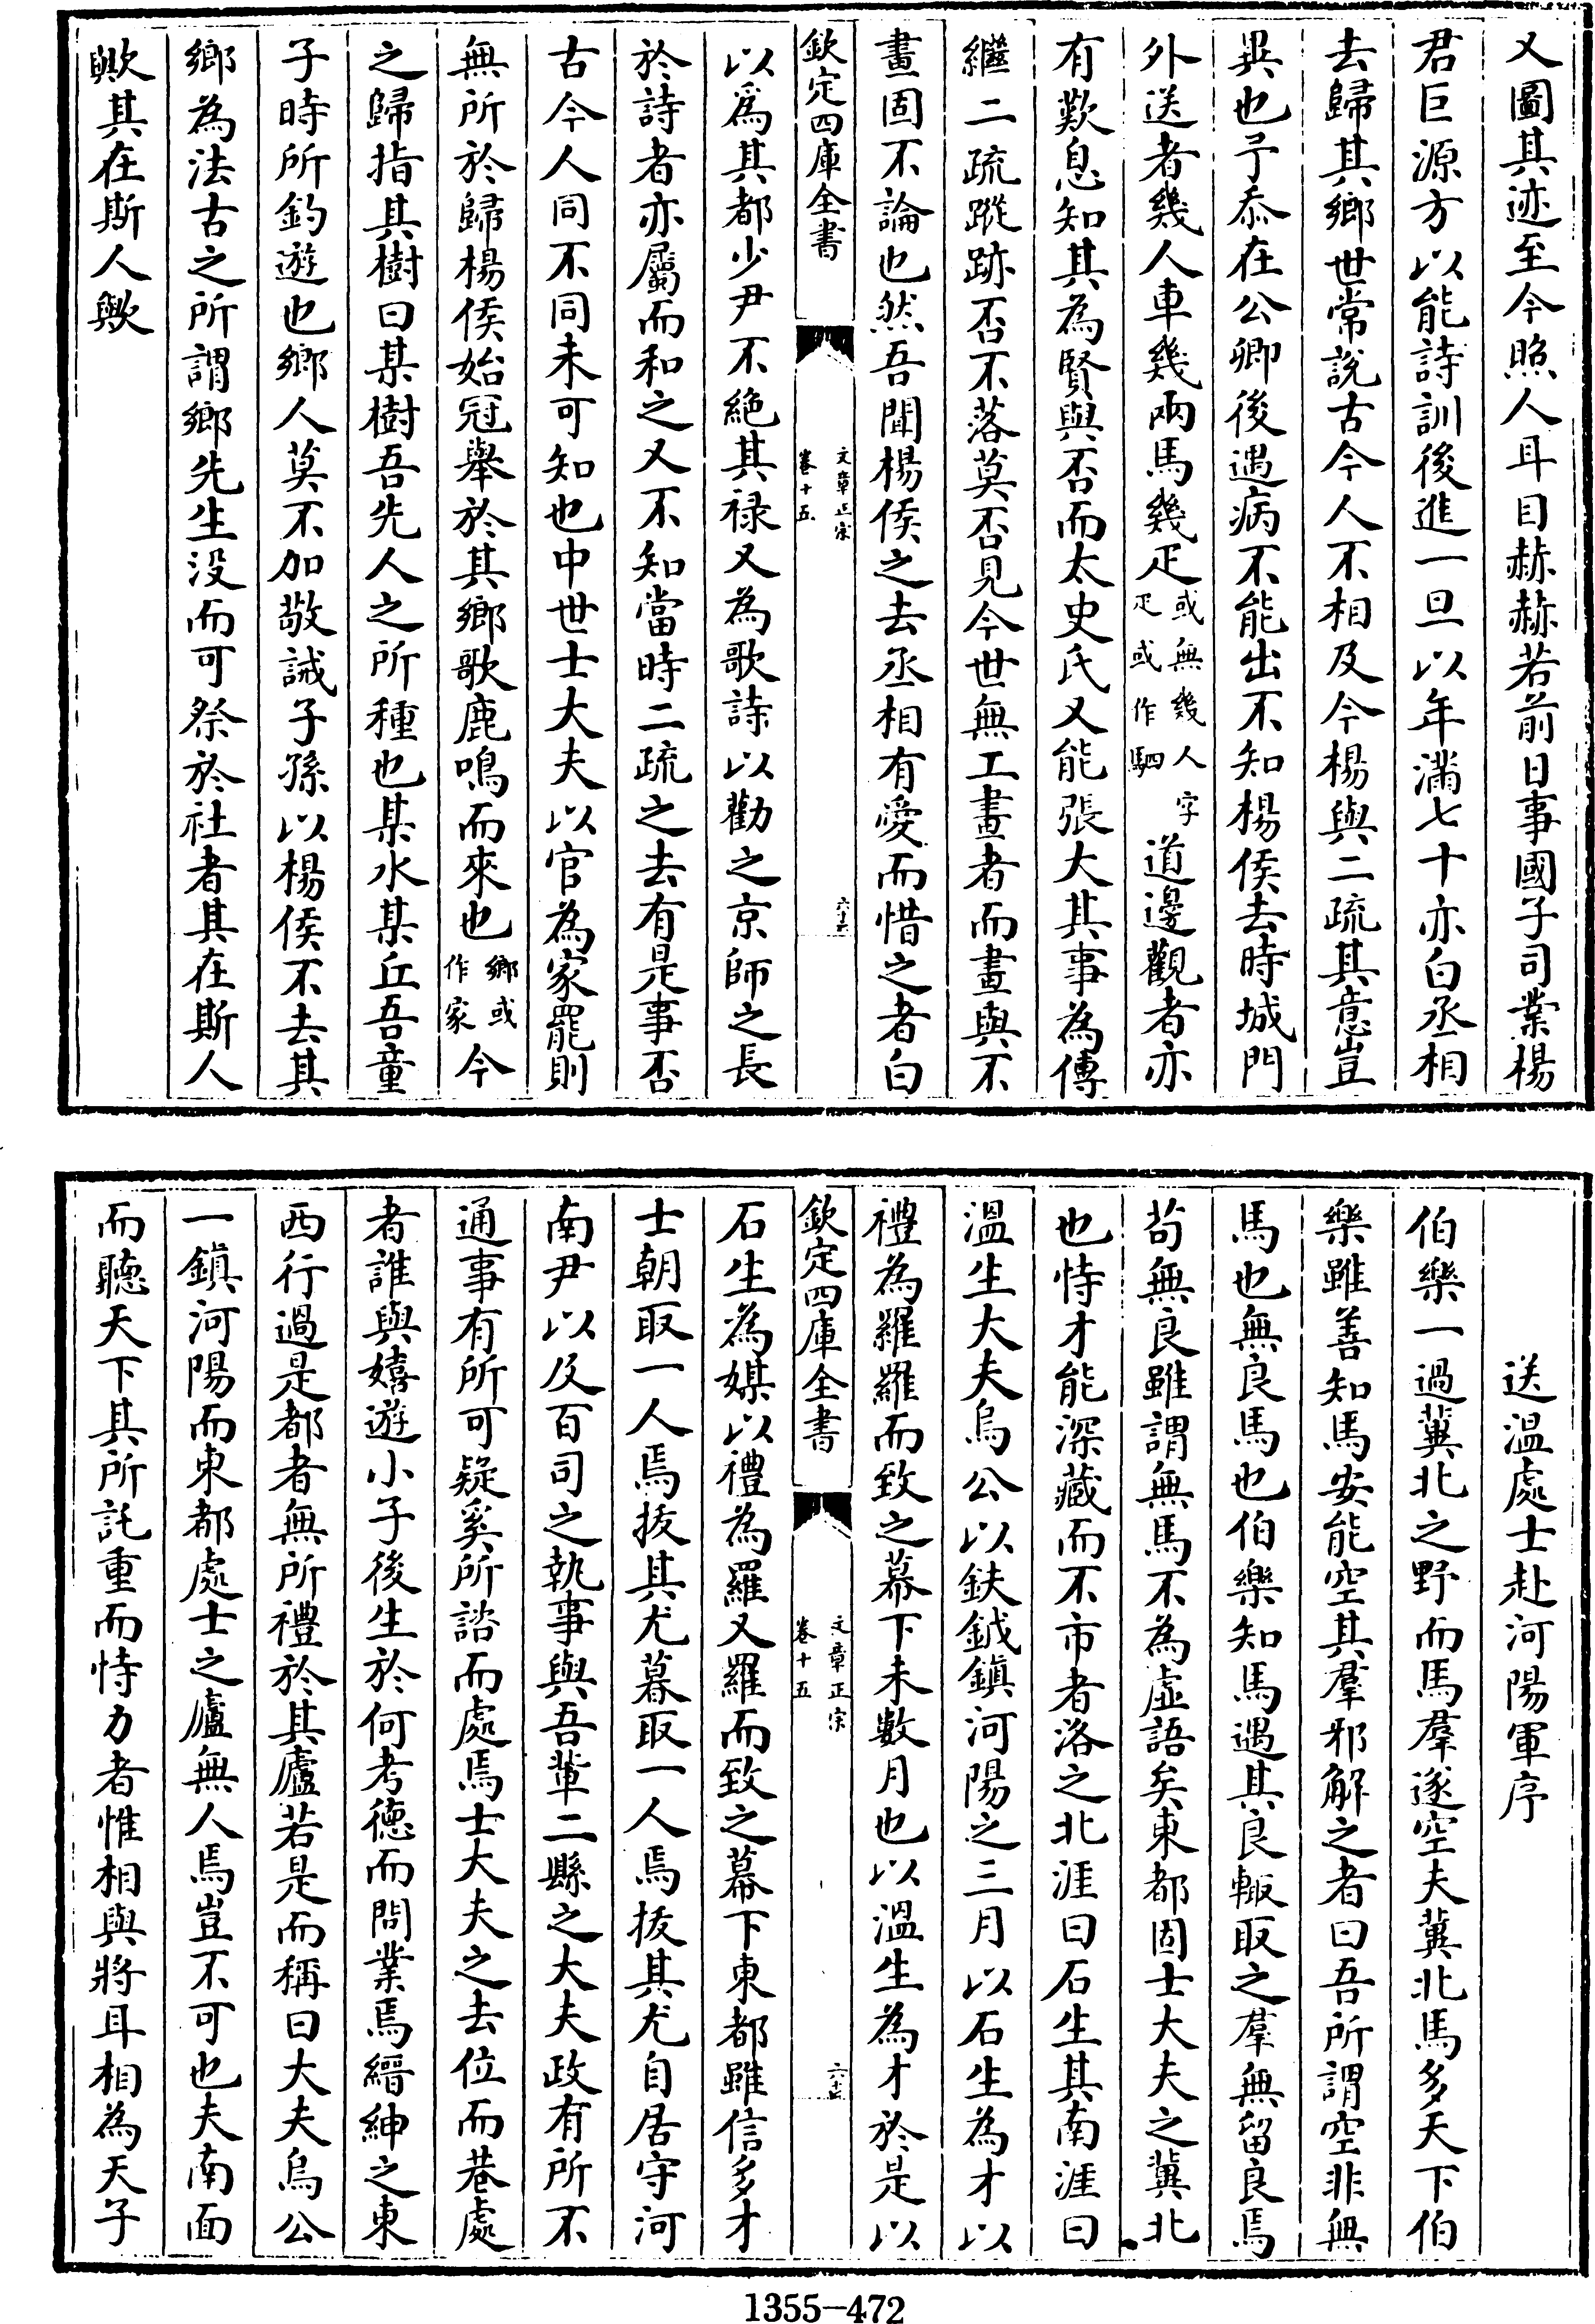 又圖其迹至今照人耳目赫赫若前日事國子司業楊
君巨源方以能詩訓後進一旦以年滿七十亦白丞相
去歸其鄉世常說古今人不相及今楊與二疏其意豈
異也予忝在公卿後遇病不能出不知楊侯去時城門
外送者幾人車幾兩馬幾疋或無幾人字疋或作駟道邊觀者亦
有歎息知其為賢與否而太史氏又能張大其事為傳
繼二疏蹤跡否不落莫否見今世無工畫者而畫與不
畫固不論也然吾聞楊侯之去丞相有愛而惜之者白
欽定四庫全書
文章正宗
卷十五
以爲其都少尹不絶其祿又為歌詩以勸之京師之長
於詩者亦屬而和之又不知當時二疏之去有是事否
古今人同不同未可知也中世士大夫以官為家罷則
無所於歸楊侯始冠舉於其鄉歌鹿鳴而來也鄉或作家今
之歸指其樹曰某樹吾先人之所種也某水某丘吾童
子時所釣遊也鄉人莫不加敬誡子孫以楊侯不去其
鄉為法古之所謂鄉先生没而可祭於社者其在斯人
歟其在斯人歟
送溫處士赴河陽軍序
伯樂一過冀北之野而馬羣遂空夫冀北馬多天下伯
樂雖善知馬安能空其羣邪解之者曰吾所謂空非無
馬也無良馬也伯樂知馬遇其良輙取之羣無留良焉
苟無良雖謂無馬不為虛語矣東都固士大夫之冀北
也恃才能深藏而不市者洛之北涯曰石生其南涯曰
溫生大夫烏公以鈇鉞鎮河陽之三月以石生為才以
禮為羅羅而致之幕下未數月也以溫生為才於是以
欽定四庫全書
文章正宗
卷十五
石生為媒以禮為羅又羅而致之幕下東都雖信多才
士朝取一人焉拔其尤暮取一人焉拔其尤自居守河
南尹以及百司之執事與吾輩二縣之大夫政有所不
通事有所可疑奚所諮而處焉士大夫之去位而巷處
者誰與嬉遊小子後生於何考德而問業焉縉紳之東
西行過是都者無所禮於其廬若是而稱曰大夫烏公
一鎮河陽而東都處士之廬無人焉豈不可也夫南面
而聽天下其所託重而恃力者惟相與將耳相為天子
1355-472